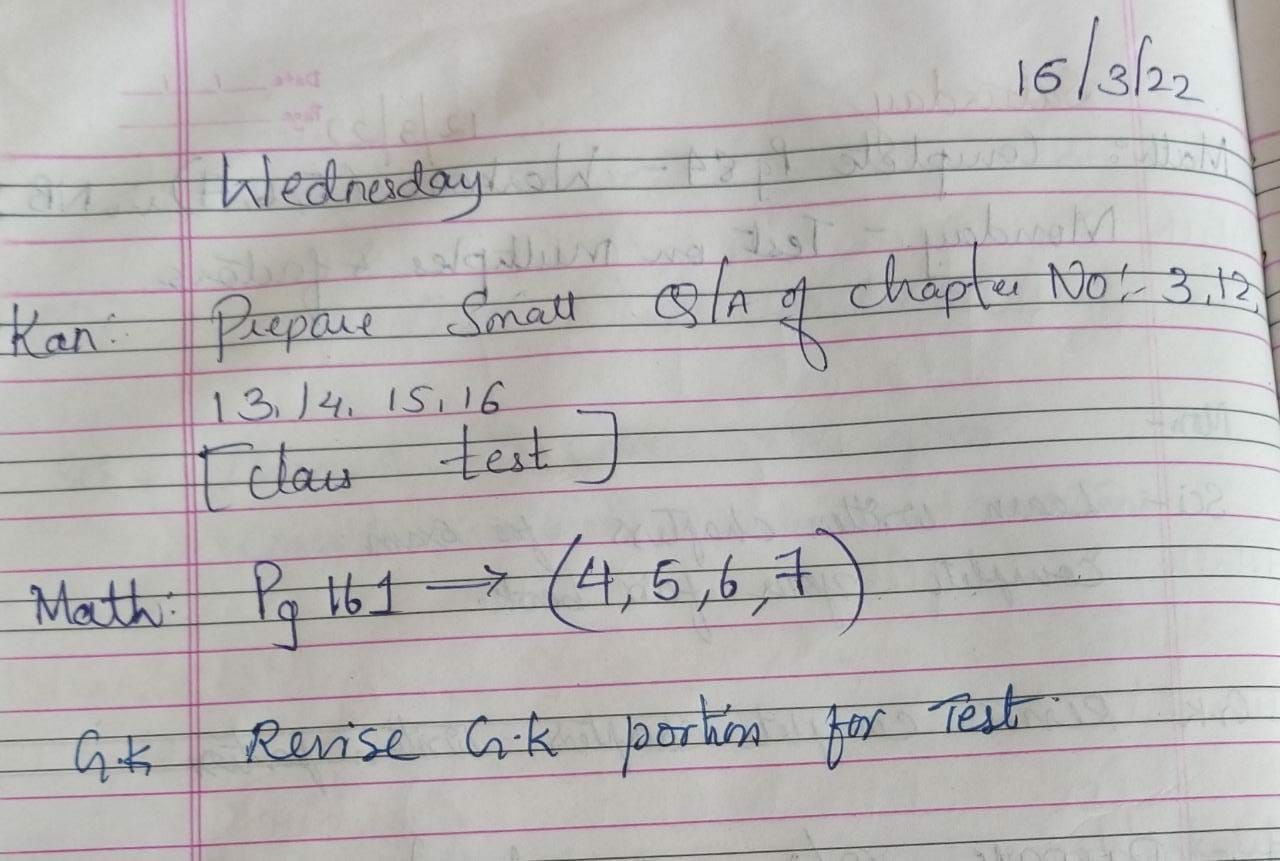 16/3/22
Wednesday
Kan: Prepare Small Q/A of chapter No:- 3, 12,
13, 14, 15, 16
[class test]
Math: Pg 161 → (4, 5, 6, 7)
G.k Revise G.k portion for Test.